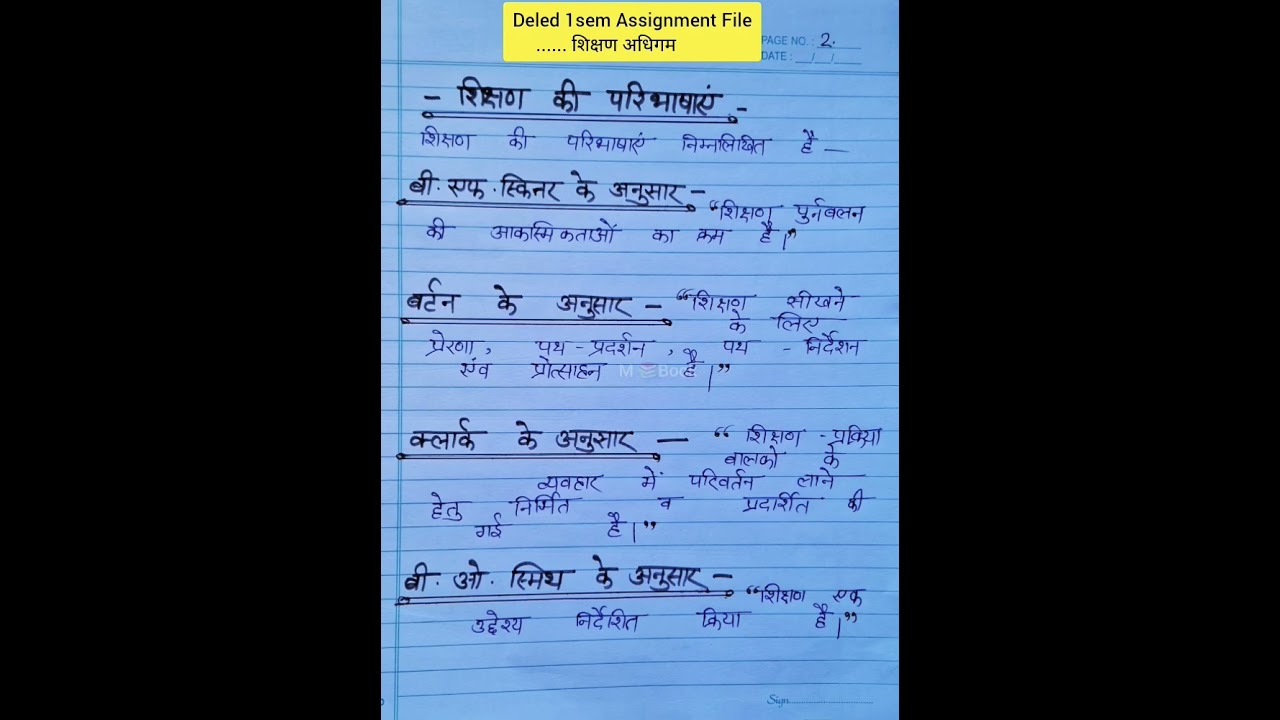 Deled 1sem Assignment File
...... शिक्षण अधिगम
PAGE NO. : 2.
DATE : __/__/__
- शिक्षण की परिभाषाएं -
शिक्षण की परिभाषाएं निम्नलिखित है —
बी. एफ. स्किनर के अनुसार - “शिक्षण पुर्नबलन
की आकस्मिकताओं का क्रम है।”
बर्टन के अनुसार - “शिक्षण सीखने
के लिए
प्रेरणा, पथ - प्रदर्शन, पथ - निर्देशन
एंव प्रोत्साहन है।”
क्लार्क के अनुसार — “ शिक्षण - प्रक्रिया
बालको के
व्यवहार में परिवर्तन लाने
हेतु निर्मित व प्रदार्शित की
गई है।”
बी. ओ. स्मिथ के अनुसार - “शिक्षण एक
उद्देश्य निर्देशित क्रिया है।”
Sign